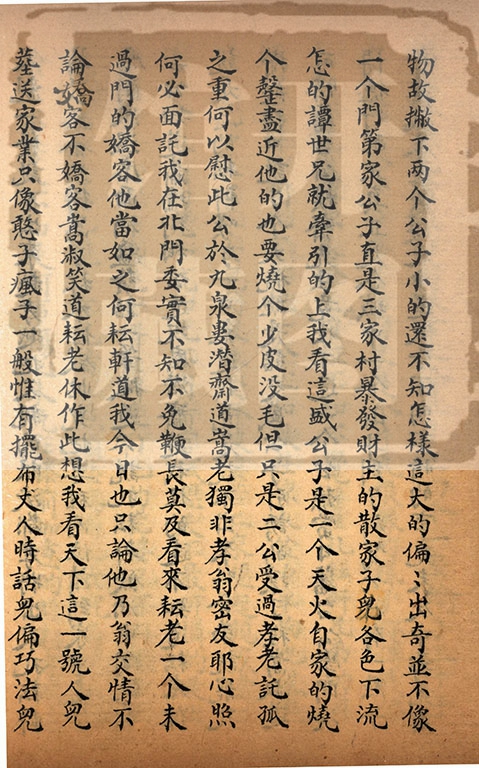 物故撇下两个公子小的還不知怎樣這大的偏〻出奇並不像
一个門第家公子直是三家村暴發財主的散家子皃各色下流
怎的譚世兄就牽引的上我看這盛公子是一个天火自家的燒
个罄盡近他的也要燒个少皮没毛但只是二公受過孝老託孤
之重何以慰此公於九泉婁潛齋道嵩老獨非孝翁密友耶心照
何必面託我在北門委實不知不免鞭長莫及看來耘老一个未
過門的嬌客他當如之何耘軒道我今日也只論他乃翁交情不
論嬌客不嬌客嵩淑笑道耘老休作此想我看天下這一號人皃
葬送家業只像憨子瘋子一般惟有擺布丈人時話皃偏巧法皃